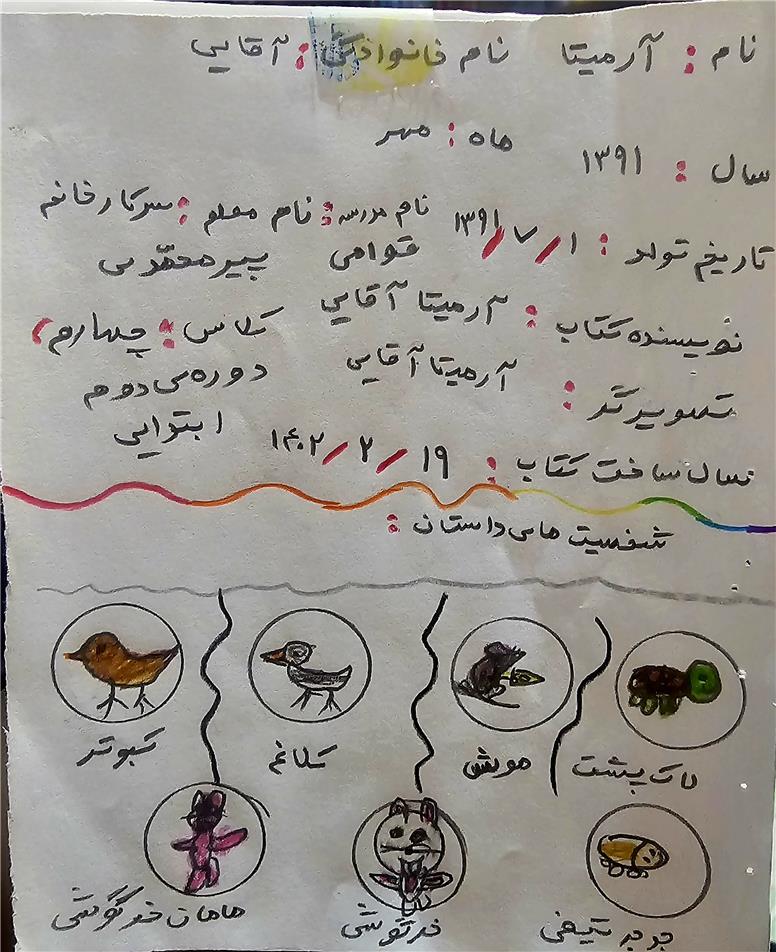 نام : آرمیتا نام خانوادگی : آقایی
ماه : مهر
سال : ۱۳۹۱
تاریخ تولد : ۱۳۹۱/۷/۱ نام مدرسه : نام معلم : سرکار خانم
قوامی پیرمحمّدی
نویسنده کتاب : آرمیتا آقایی کلاس : چهارم ،
تصویرگر : آرمیتا آقایی دوره ی دوم
ابتوایی
سال ساخت کتاب : ۱۴۰۲/۲/۱۹
شخصیت های داستان :
لاک پشت موش کلاغ کبوتر
جوجه تیغی خرگوش مامان خرگوشی